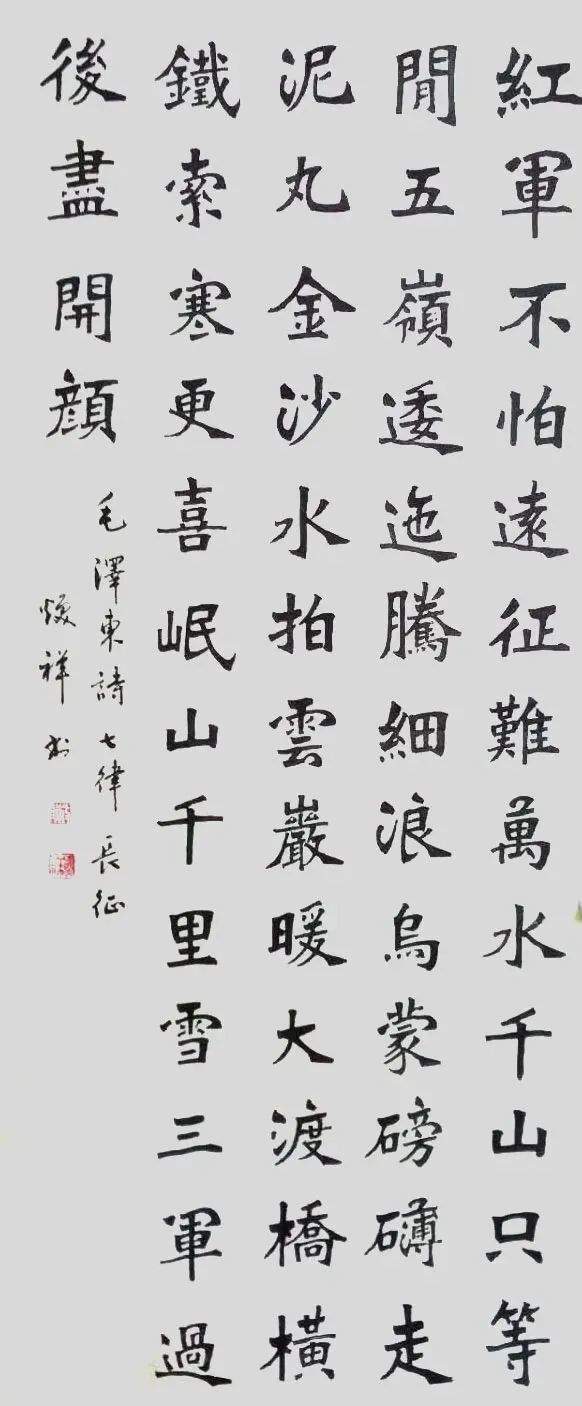 紅軍不怕遠征難萬水千山只等
閒五嶺逶迤騰細浪烏蒙磅礴走
泥丸金沙水拍雲巖暖大渡橋橫
鐵索寒更喜岷山千里雪三軍過
後盡開顏
毛澤東詩七律長征
煥祥書